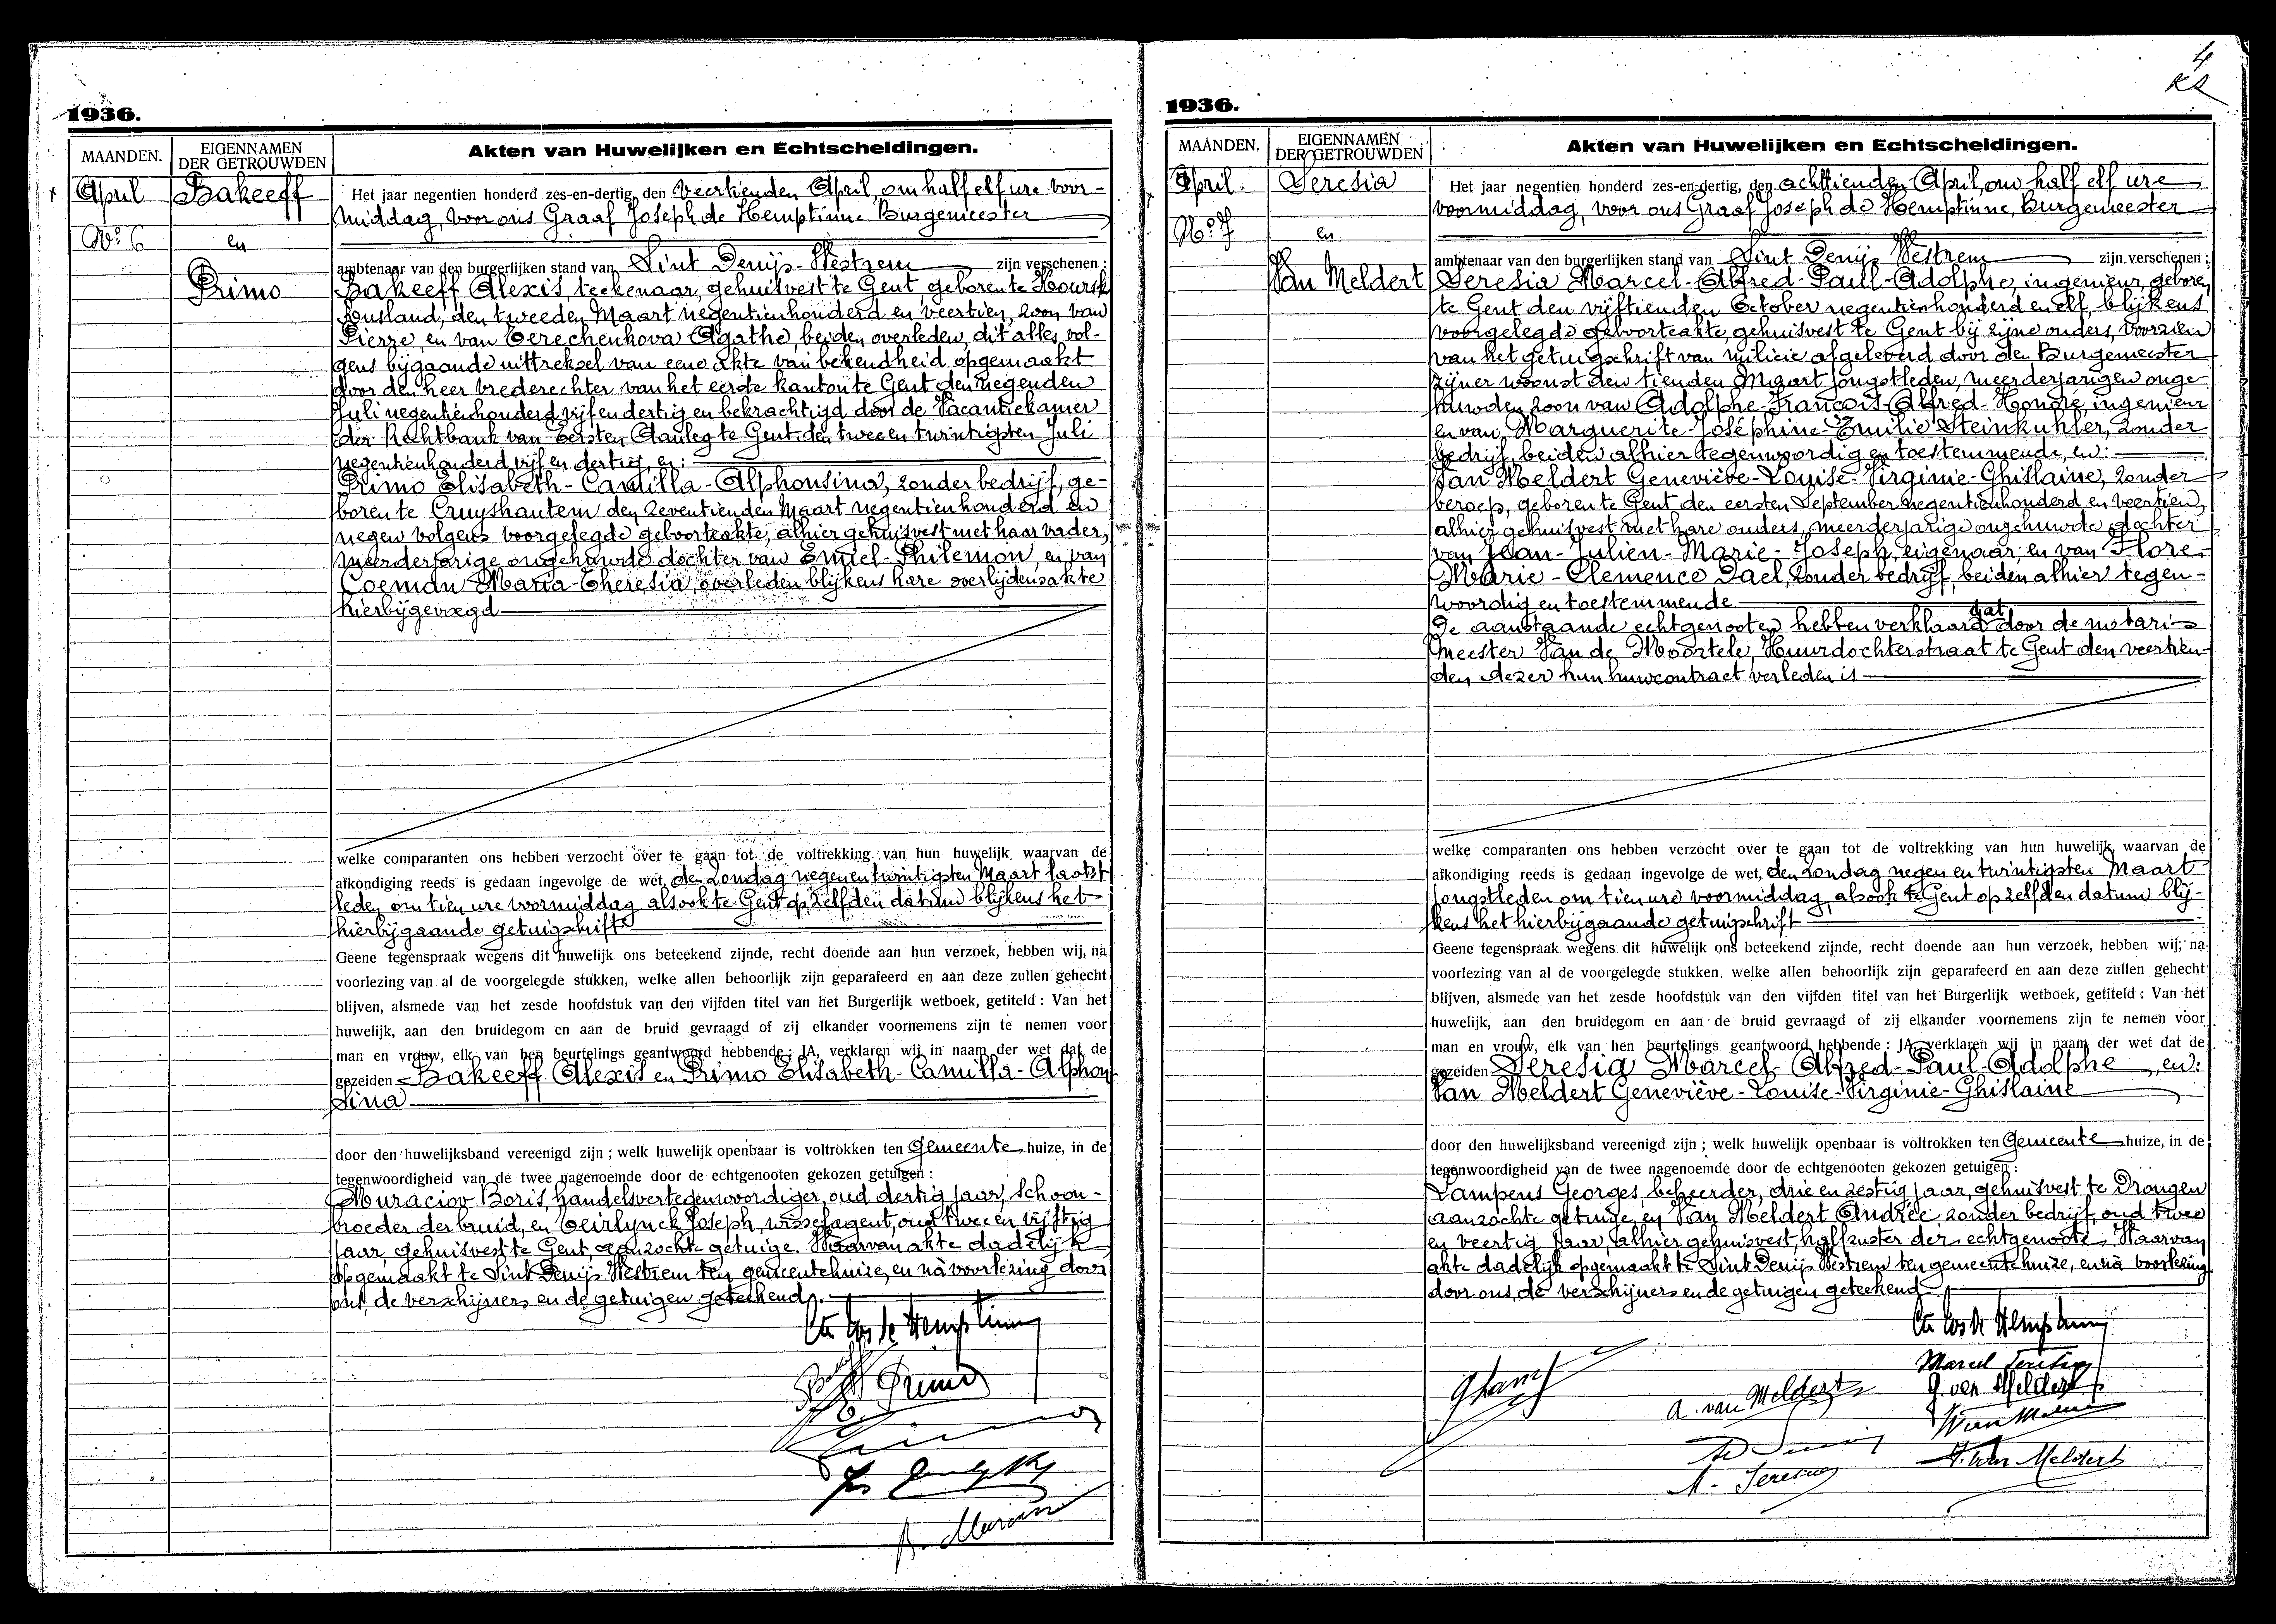 1936.
MAANDEN.
EIGENNAMEN
DER GETROUWDEN
Akten van Huwelijken en Echtscheidingen.
April
Bakeeff
No. 6
en
Primo
Het jaar negentien honderd zes-en-dertig, den veertienden April, om half elf ure voor-
middag, voor ons Graaf Joseph de Hemptinne Burgemeester
ambtenaar van den burgerlijken stand van Sint Denijs-Westrem zijn verschenen :
Bakeeff Alexis, teekenaar, gehuisvest te Gent, geboren te Koursk
Rusland, den tweeden Maart negentienhonderd en veertien, zoon van
Pierre, en van Terechenkova Agathe, beiden overleden, dit alles vol-
gens bijgaande uittreksel van eene akte van bekendheid opgemaakt
door den heer vrederechter van het eerste kanton te Gent den negenden
Juli negentienhonderd vijf en dertig en bekrachtigd door de Vacantiekamer
der Rechtbank van Eersten Aanleg te Gent den twee en twintigsten Juli
negentienhonderd vijf en dertig, en:
Primo Elisabeth-Camilla-Alphonsina, zonder bedrijf, ge-
boren te Cruyshautem den zeventienden Maart negentienhonderd en
negen volgens voorgelegde geboorteakte, alhier gehuisvest met haar vader,
meerderjarige ongehuwde dochter van Emiel-Philemon, en van
Coeman Maria-Theresia, overleden blijkens hare overlijdensakte
hierbijgevoegd
welke comparanten ons hebben verzocht over te gaan tot de voltrekking van hun huwelijk waarvan de
afkondiging reeds is gedaan ingevolge de wet, den zondag negen en twintigsten Maart laatst
leden om tien ure voormiddag alsook te Gent op zelfden datum blijkens het
hierbijgaande getuigschrift
Geene tegenspraak wegens dit huwelijk ons beteekend zijnde, recht doende aan hun verzoek, hebben wij, na
voorlezing van al de voorgelegde stukken, welke allen behoorlijk zijn geparafeerd en aan deze zullen gehecht
blijven, alsmede van het zesde hoofdstuk van den vijfden titel van het Burgerlijk wetboek, getiteld : Van het
huwelijk, aan den bruidegom en aan de bruid gevraagd of zij elkander voornemens zijn te nemen voor
man en vrouw, elk van hen beurtelings geantwoord hebbende : JA, verklaren wij in naam der wet dat de
gezeiden Bakeeff Alexis en Primo Elisabeth-Camilla-Alphon
sina
door den huwelijksband vereenigd zijn ; welk huwelijk openbaar is voltrokken ten Gemeente huize, in de
tegenwoordigheid van de twee nagenoemde door de echtgenooten gekozen getuigen :
Muraciov Boris, handelsvertegenwoordiger, oud dertig jaar, schoon-
broeder der bruid, en Teirlynck Joseph, wisselagent, oud twee en vijftig
jaar, gehuisvest te Gent, aanzochte getuige. Waarvan akte dadelijk
opgemaakt te Sint Denijs Westrem ten gemeentehuize, en na voorlezing door
ons, de verschijners en de getuigen geteekend.
Cte Jos de Hemptinne
Primo
4
1936.
MAANDEN.
EIGENNAMEN
DER GETROUWDEN
Akten van Huwelijken en Echtscheidingen.
April
Seresia
No. 7
en
Van Meldert
Het jaar negentien honderd zes-en-dertig, den achttienden April, om half elf ure
voormiddag, voor ons Graaf Joseph de Hemptinne, Burgemeester
ambtenaar van den burgerlijken stand van Sint Denijs Westrem zijn verschenen :
Seresia Marcel-Alfred-Paul-Adolphe, ingenieur, geboren
te Gent den vijftienden October negentienhonderd en elf, blijkens
voorgelegde geboorteakte, gehuisvest te Gent bij zijne ouders, voorzien
van het getuigschrift van milicie afgeleverd door den Burgemeester
zijner woonst den tienden Maart jongstleden, meerderjarigen onge-
huwden zoon van Adolphe-François-Alfred-Honoré, ingenieur
en van Marguerite-Joséphine-Emilie Steinkuhler, zonder
bedrijf, beiden alhier tegenwoordig en toestemmende, en:
Van Meldert Geneviève-Louise-Virginie-Ghislaine, zonder
beroep, geboren te Gent den eersten September negentienhonderd en veertien,
alhier gehuisvest met hare ouders, meerderjarige ongehuwde dochter
van Jean-Julien-Marie-Joseph, eigenaar, en van Flore-
Marie-Clemence Dael, zonder bedrijf, beiden alhier tegen-
woordig en toestemmende.
De aanstaande echtgenooten hebben verklaard dat door de notaris
meester Van de Moortele, Huurdochterstraat te Gent den veertien-
den dezer hun huwcontract verleden is
welke comparanten ons hebben verzocht over te gaan tot de voltrekking van hun huwelijk waarvan de
afkondiging reeds is gedaan ingevolge de wet, den zondag negen en twintigsten Maart
jongstleden om tien ure voormiddag, alsook te Gent op zelfden datum blij-
kens het hierbijgaande getuigschrift
Geene tegenspraak wegens dit huwelijk ons beteekend zijnde, recht doende aan hun verzoek, hebben wij, na
voorlezing van al de voorgelegde stukken, welke allen behoorlijk zijn geparafeerd en aan deze zullen gehecht
blijven, alsmede van het zesde hoofdstuk van den vijfden titel van het Burgerlijk wetboek, getiteld : Van het
huwelijk, aan den bruidegom en aan de bruid gevraagd of zij elkander voornemens zijn te nemen voor
man en vrouw, elk van hen beurtelings geantwoord hebbende : JA, verklaren wij in naam der wet dat de
gezeiden Seresia Marcel-Alfred-Paul-Adolphe, en:
Van Meldert Geneviève-Louise-Virginie-Ghislaine
door den huwelijksband vereenigd zijn ; welk huwelijk openbaar is voltrokken ten Gemeente huize, in de
tegenwoordigheid van de twee nagenoemde door de echtgenooten gekozen getuigen :
Lampens Georges, beheerder, drie en zestig jaar, gehuisvest te Drongen
aanzochte getuige, en Van Meldert Andrée, zonder bedrijf, oud twee
en veertig jaar, alhier gehuisvest, halfzuster der echtgenoote. Waarvan
akte dadelijk opgemaakt te Sint Denijs Westrem ten gemeentehuize, en na voorlezing
door ons, de verschijners en de getuigen geteekend
Cte Jos de Hemptinne
Marcel Seresia
G. van Meldert
A. van Meldert
A. Seresia
J. van Meldert